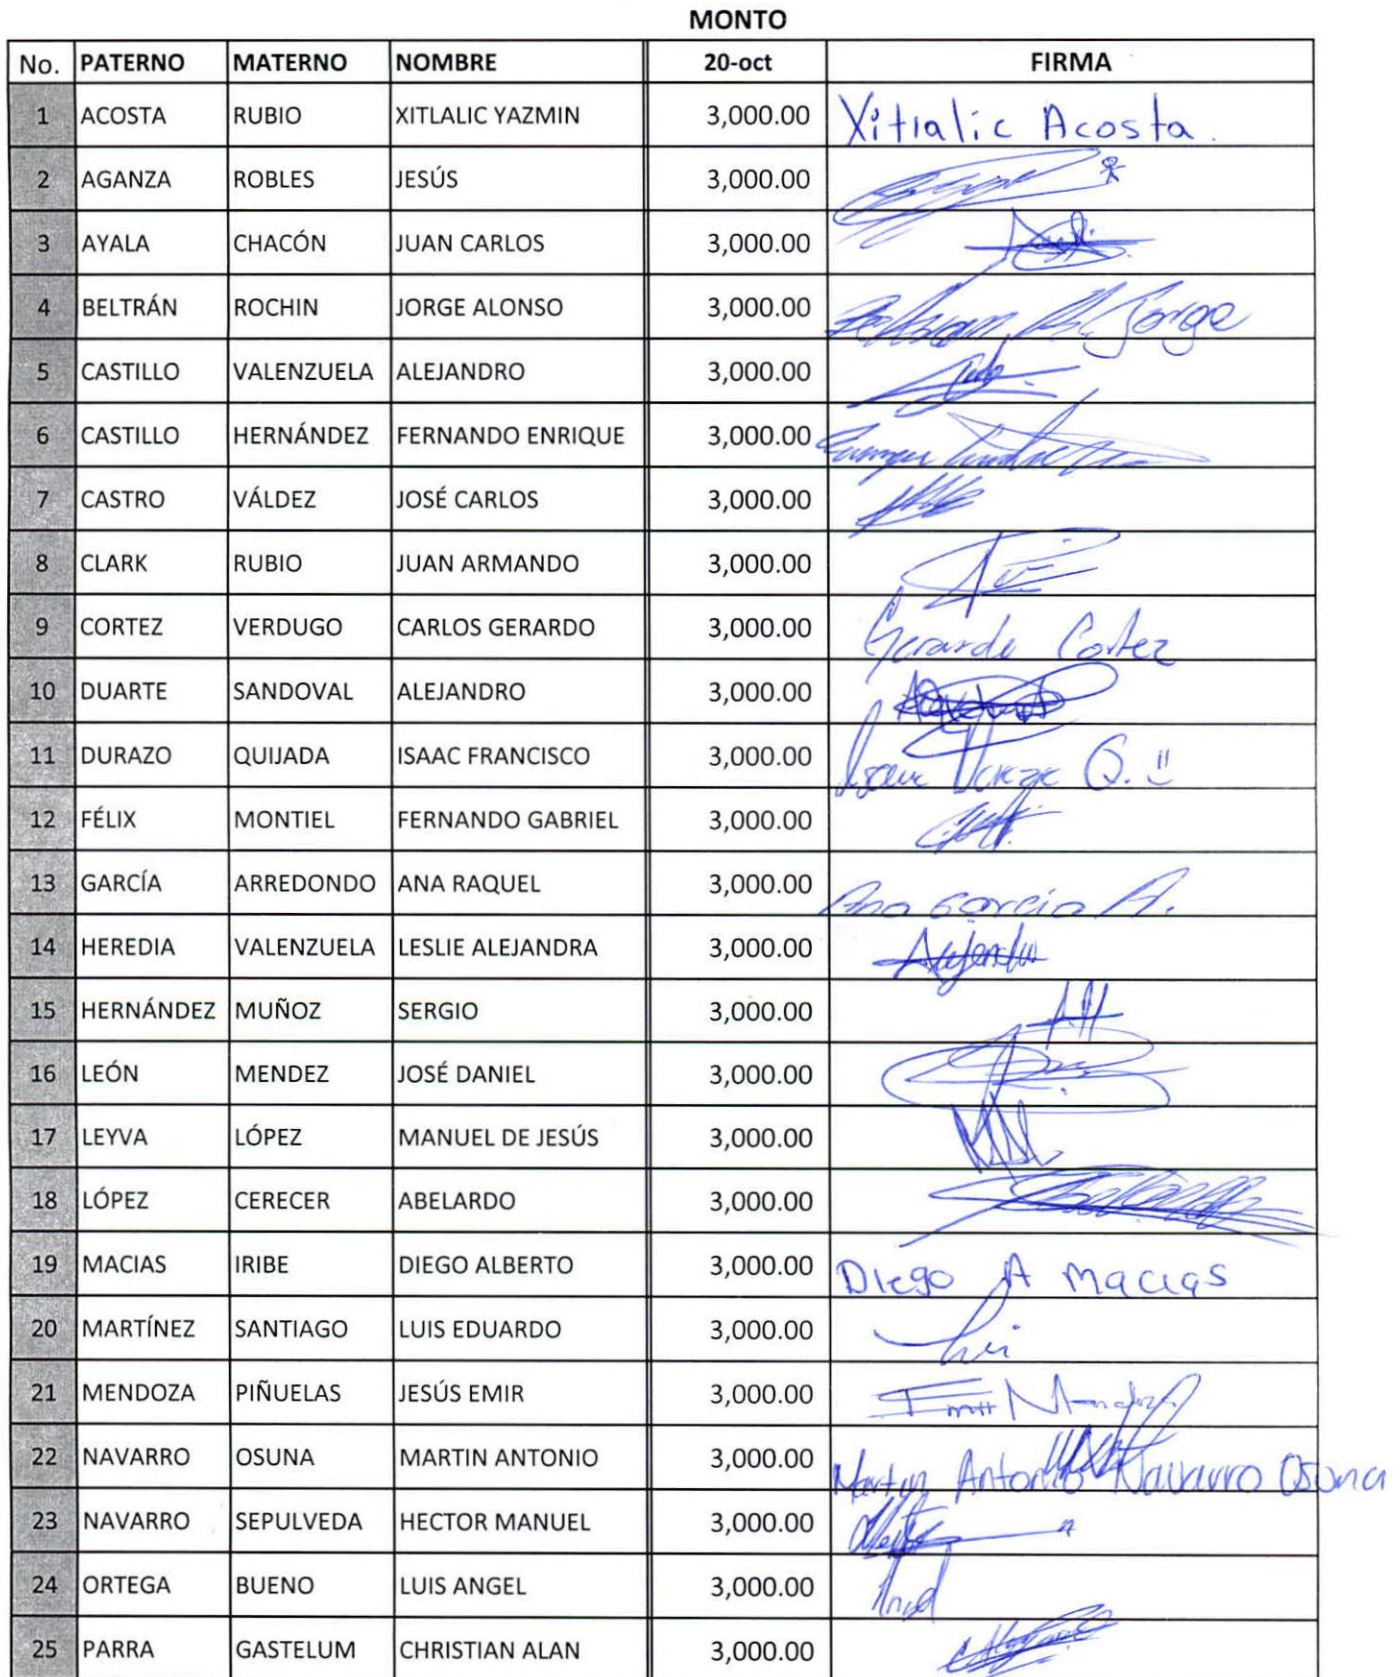 MONTO
No. PATERNO MATERNO NOMBRE 20-oct FIRMA
1 ACOSTA RUBIO XITLALIC YAZMIN 3,000.00 Xitlalic Acosta.
2 AGANZA ROBLES JESÚS 3,000.00
3 AYALA CHACÓN JUAN CARLOS 3,000.00
4 BELTRÁN ROCHIN JORGE ALONSO 3,000.00 Beltran R. Jorge
5 CASTILLO VALENZUELA ALEJANDRO 3,000.00
6 CASTILLO HERNÁNDEZ FERNANDO ENRIQUE 3,000.00
7 CASTRO VÁLDEZ JOSÉ CARLOS 3,000.00
8 CLARK RUBIO JUAN ARMANDO 3,000.00
9 CORTEZ VERDUGO CARLOS GERARDO 3,000.00 Gerardo Cortez
10 DUARTE SANDOVAL ALEJANDRO 3,000.00
11 DURAZO QUIJADA ISAAC FRANCISCO 3,000.00 Isaac Durazo Q.
12 FÉLIX MONTIEL FERNANDO GABRIEL 3,000.00
13 GARCÍA ARREDONDO ANA RAQUEL 3,000.00 Ana García A.
14 HEREDIA VALENZUELA LESLIE ALEJANDRA 3,000.00 Alejandra
15 HERNÁNDEZ MUÑOZ SERGIO 3,000.00
16 LEÓN MENDEZ JOSÉ DANIEL 3,000.00
17 LEYVA LÓPEZ MANUEL DE JESÚS 3,000.00
18 LÓPEZ CERECER ABELARDO 3,000.00
19 MACIAS IRIBE DIEGO ALBERTO 3,000.00 Diego A Macias
20 MARTÍNEZ SANTIAGO LUIS EDUARDO 3,000.00 Luis
21 MENDOZA PIÑUELAS JESÚS EMIR 3,000.00 Emir Mendoza
22 NAVARRO OSUNA MARTIN ANTONIO 3,000.00 Martin Antonio Navarro Osuna
23 NAVARRO SEPULVEDA HECTOR MANUEL 3,000.00
24 ORTEGA BUENO LUIS ANGEL 3,000.00
25 PARRA GASTELUM CHRISTIAN ALAN 3,000.00